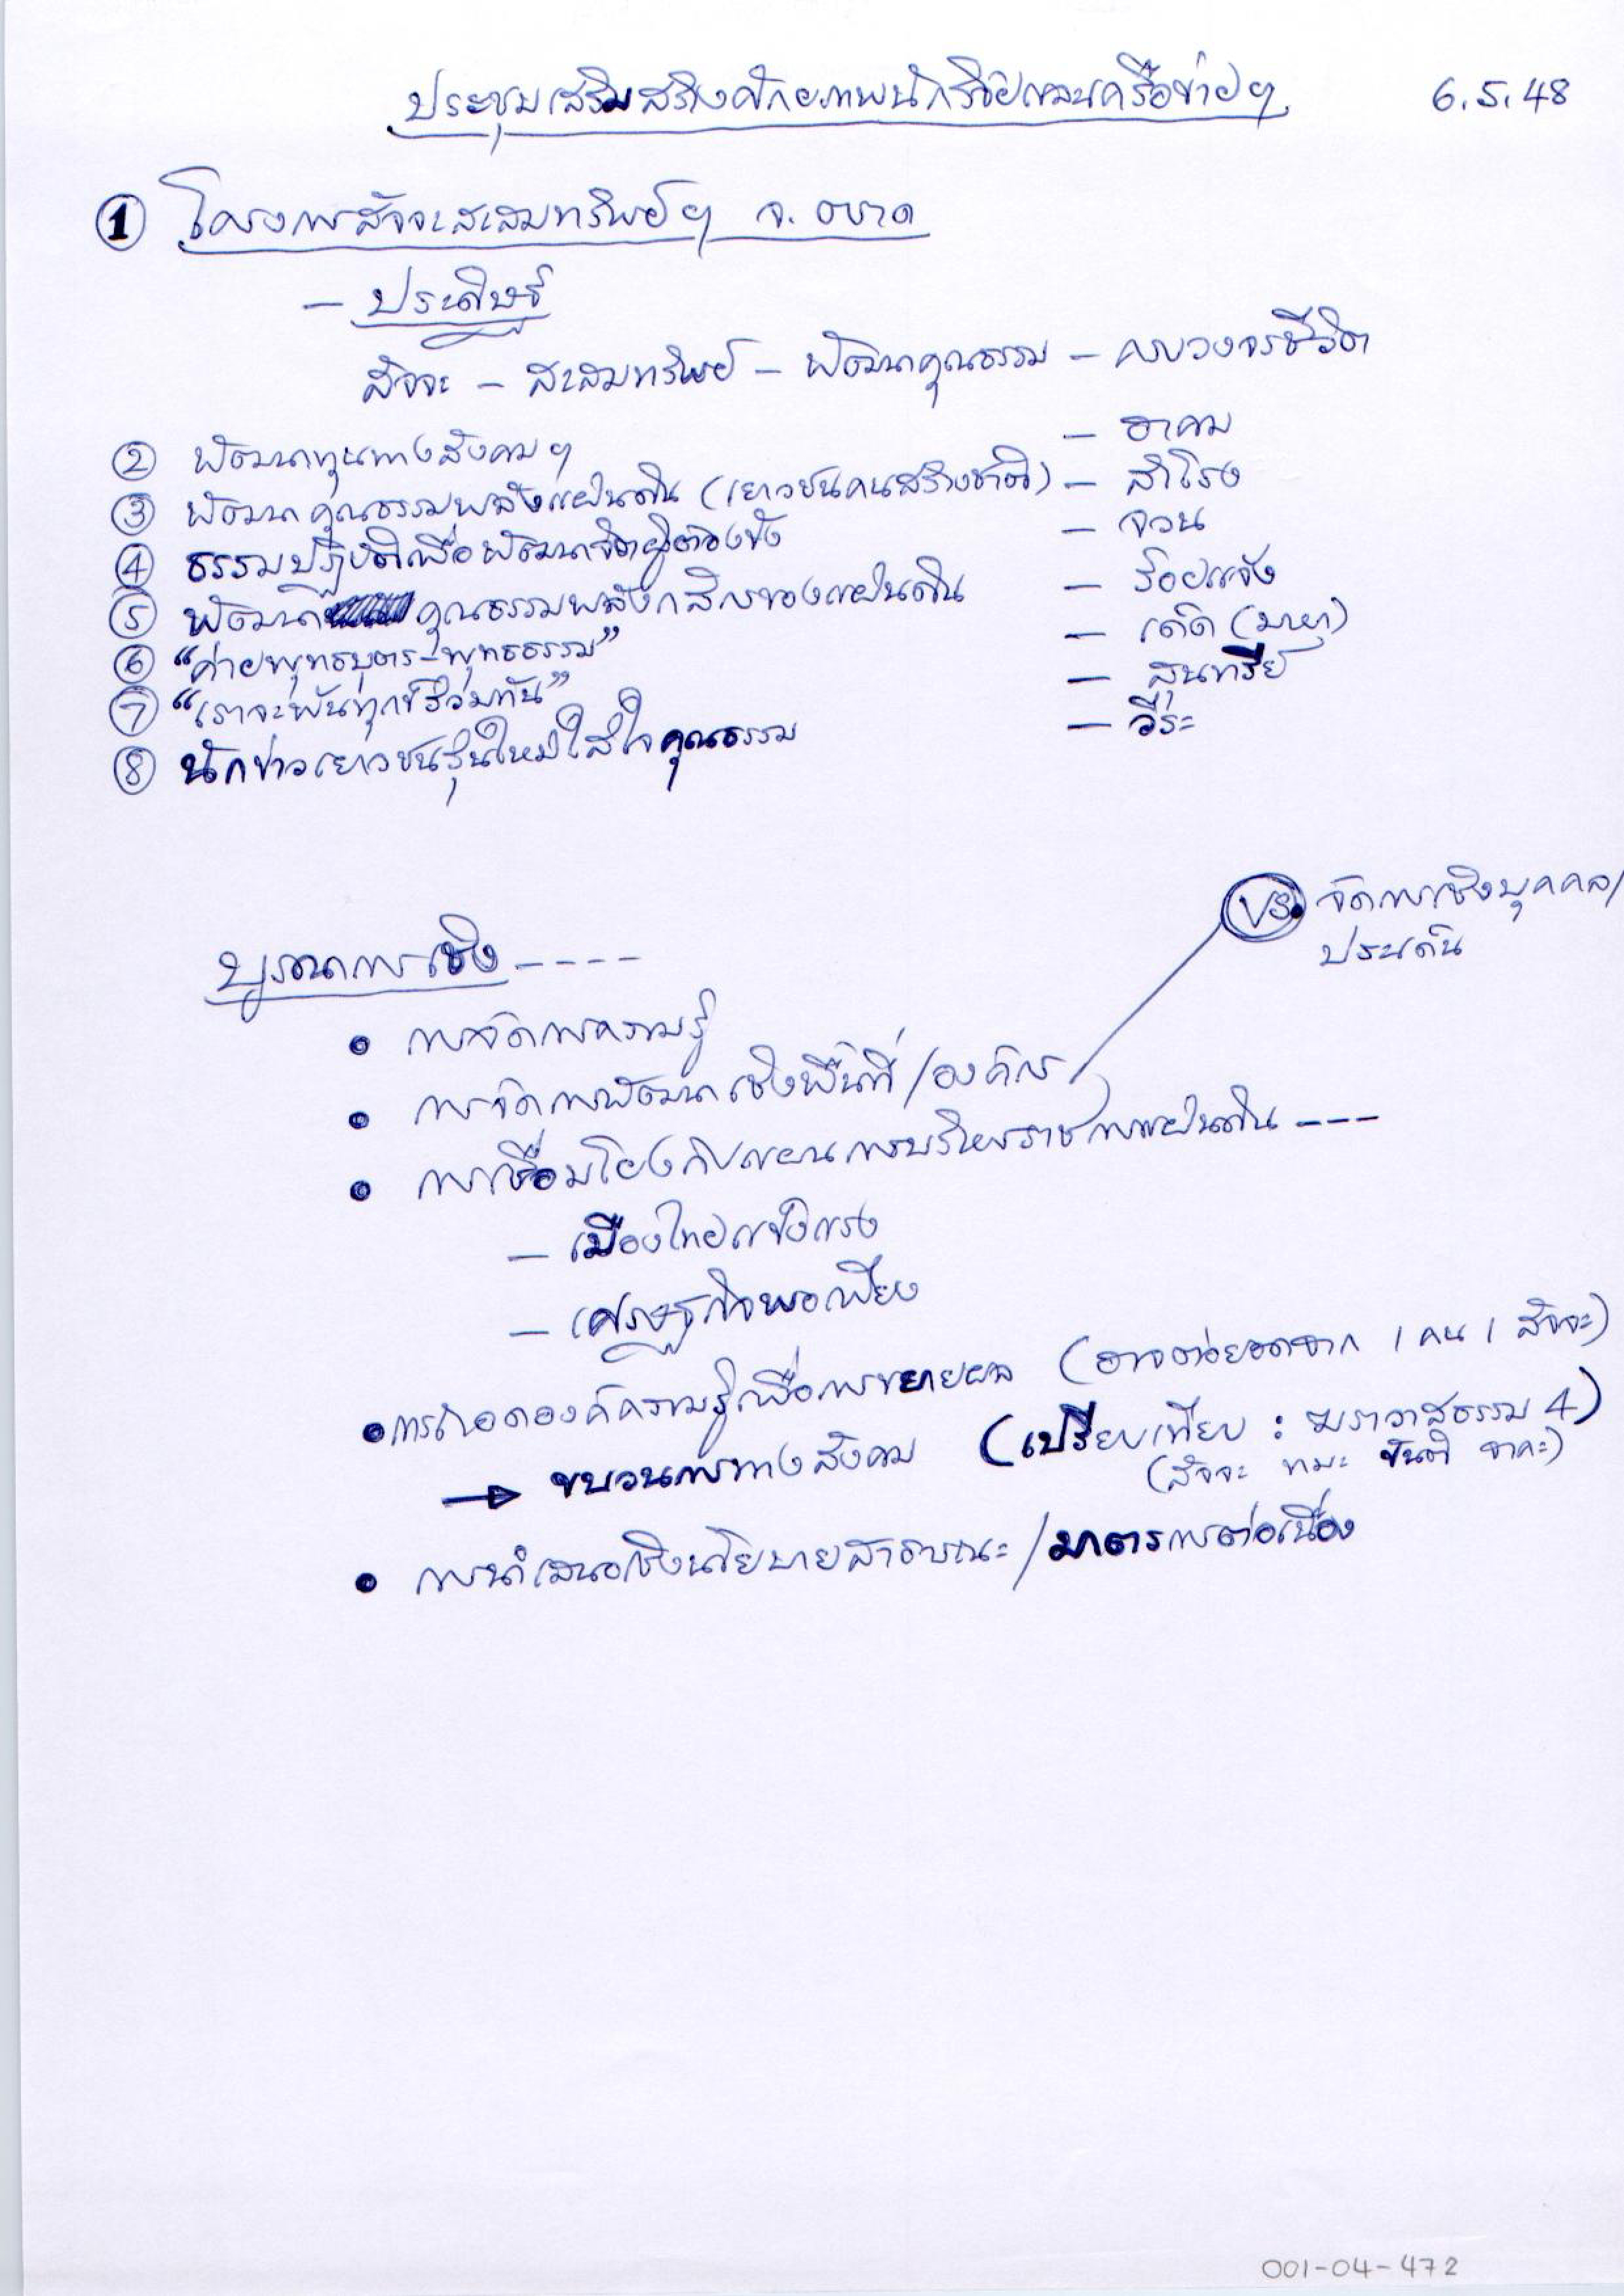 ประชุมเสริมสร้างศักยภาพนักวิจัยแผนเครือข่ายฯ 6.5.48
① โครงการสัจจะสะสมทรัพย์ฯ จ. ตราด
– ประดิษฐ์
สัจจะ – สะสมทรัพย์ – พัฒนาคุณธรรม – ครบวงจรชีวิต
② พัฒนาทุนทางสังคมฯ – อาคม
③ พัฒนาคุณธรรมพลังแผ่นดิน (เยาวชนคนสร้างชาติ) – สำโรง
④ ธรรมปฏิบัติเพื่อพัฒนาจิตผู้ต้องขัง – จวน
⑤ พัฒนา คุณธรรมพลังกสิกรของแผ่นดิน – ร้อยแจ้ง
⑥ “ค่ายพุทธบุตร-พุทธธรรม” – เดิด (มายา)
⑦ “เราจะพ้นทุกข์ร่วมกัน” – สุนทรีย์
⑧ นักข่าวเยาวชนรุ่นใหม่ใส่ใจคุณธรรม – วีระ
VS. จัดการเชิงบุคคล/
ประเด็น
บูรณาการเชิง ----
• การจัดการความรู้
• การจัดการพัฒนาเชิงพื้นที่/องค์กร
• การเชื่อมโยงกับแผนการบริหารราชการแผ่นดิน ---
– เมืองไทยแข็งแรง
– เศรษฐกิจพอเพียง
• การถอดองค์ความรู้เพื่อการขยายผล (อาจต่อยอดจาก 1 คน 1 สัจจะ)
→ ขบวนการทางสังคม (เปรียบเทียบ : ฆราวาสธรรม 4)
(สัจจะ ทมะ ขันติ จาคะ)
• การนำเสนอเชิงนโยบายสาธารณะ/มาตรการต่อเนื่อง
001-04-472